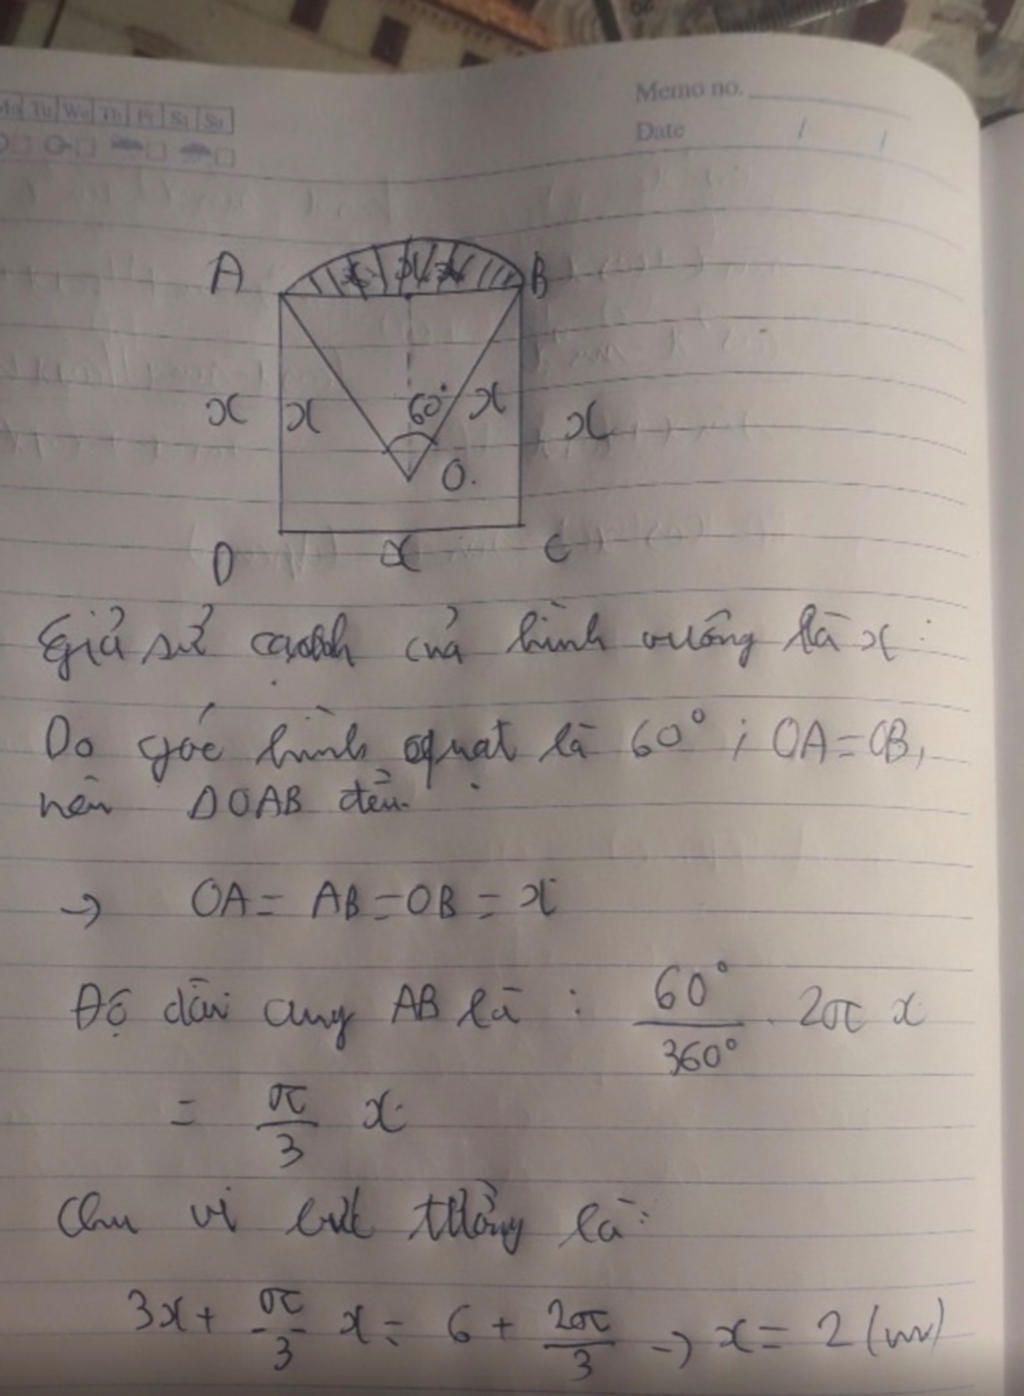 Mo Tu We Th Fr Sa Su
Memo no.
Date / /
A B
x x 60° x x
O.
D x C
Giả sử cạnh của hình vuông là x:
Do góc hình quạt là 60°; OA=OB,
nên ΔOAB đều.
→ OA = AB = OB = x
Độ dài cung AB là : 60°/360° . 2π x
= π/3 x
Chu vi bức tường là:
3x + π/3 x = 6 + 2π/3 → x = 2 (m)